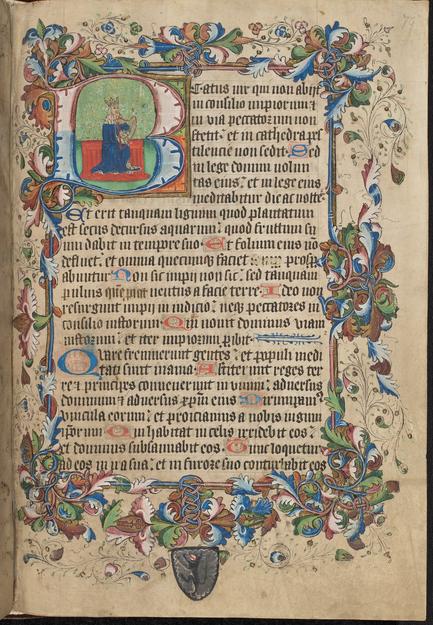 Beatus vir qui non abijt
in consilio impiorum et
in via peccatorum non
stetit · et in cathedra pes
tilencie non sedit · Sed
in lege domini volun
tas eius · et in lege eius
meditabitur die ac nocte
Et erit tanquam lignum quod plantatum
est secus decursus aquarum · quod fructum su
um dabit in tempore suo · Et folium eius no
defluet · et omnia quecunque faciet prospe
rabuntur Non sic impij non sic · sed tanquam
puluis quem proicit ventus a facie terre · Ideo non
resurgunt impij in iudicio · neque peccatores in
consilio iustorum · Quoniam nouit dominus viam
iustorum · et iter impiorum peribit
Quare fremuerunt gentes · et populi medi
tati sunt inania · Astiterunt reges ter
re et principes conuenerunt in vnum · aduersus
dominum et aduersus xpm eius Dirumpamus
vincula eorum · et proiciamus a nobis iugum
ipsorum Qui habitat in celis irridebit eos ·
et dominus subsannabit eos · Tunc loquetur
ad eos in ira sua · et in furore suo conturbabit eos